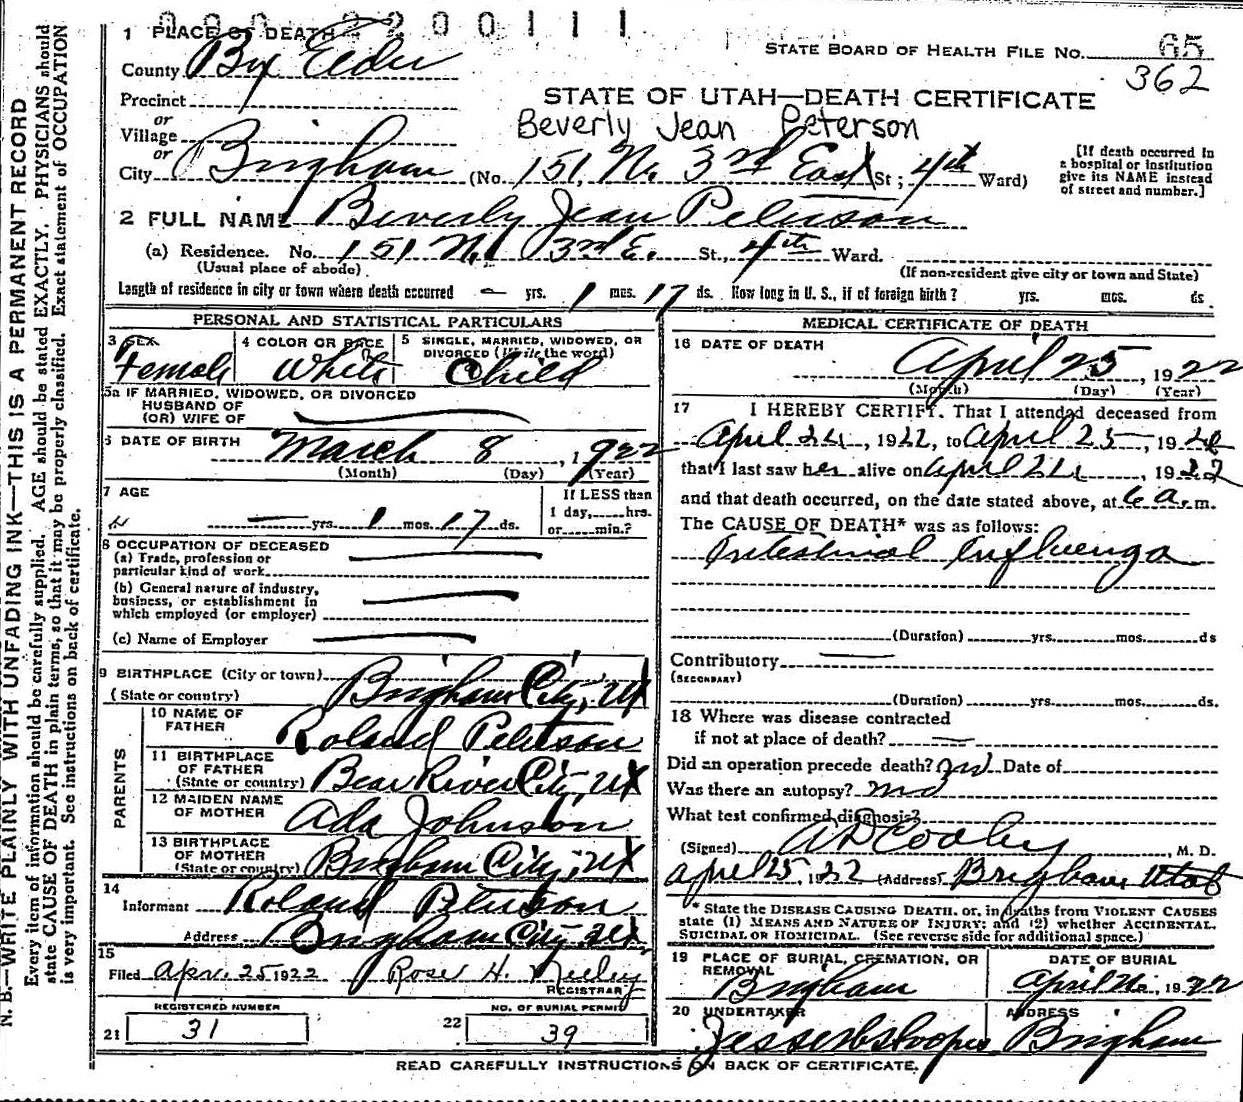 1 PLACE OF DEATH
STATE BOARD OF HEALTH FILE NO. 65
362
County Box Elder
Precinct
or
Village
or
STATE OF UTAH—DEATH CERTIFICATE
Beverly Jean Peterson
City Brigham (No. 151, N. 3rd East St; 4th Ward)
[If death occurred in
a hospital or institution
give its NAME instead
of street and number.]
2 FULL NAME Beverly Jean Peterson
(a) Residence. No. 151 N. 3rd E. St., 4th Ward.
(Usual place of abode) (If non-resident give city or town and State)
Length of residence in city or town where death occurred – yrs. 1 mos. 17 ds. How long in U. S., if of foreign birth? yrs. mos. ds
PERSONAL AND STATISTICAL PARTICULARS
3 SEX Female
4 COLOR OR RACE White
5 SINGLE, MARRIED, WIDOWED, OR
DIVORCED (Write the word)
Child
5a IF MARRIED, WIDOWED, OR DIVORCED
HUSBAND OF
(OR) WIFE OF
6 DATE OF BIRTH March 8, 1922
(Month) (Day) (Year)
7 AGE
— yrs. 1 mos. 17 ds.
If LESS than
1 day, hrs.
or min.?
8 OCCUPATION OF DECEASED
(a) Trade, profession or
particular kind of work
(b) General nature of industry,
business, or establishment in
which employed (or employer)
(c) Name of Employer
9 BIRTHPLACE (City or town)
(State or country) Brigham City, Ut
PARENTS
10 NAME OF
FATHER Roland Peterson
11 BIRTHPLACE
OF FATHER
(State or country) Bear River City, Ut
12 MAIDEN NAME
OF MOTHER Ada Johnson
13 BIRTHPLACE
OF MOTHER
(State or country) Brigham City, Ut
14
Informant Roland Peterson
Address Brigham City, Ut
15
Filed Apr. 25 1922 Rose H. Neeley
REGISTRAR
REGISTERED NUMBER
21 31
NO. OF BURIAL PERMIT
22 39
MEDICAL CERTIFICATE OF DEATH
16 DATE OF DEATH
April 25, 1922
(Month) (Day) (Year)
17 I HEREBY CERTIFY, That I attended deceased from
April 24, 1922, to April 25, 1922
that I last saw her alive on April 24, 1922
and that death occurred, on the date stated above, at 6 a. m.
The CAUSE OF DEATH* was as follows:
Intestinal Influenza
(Duration) yrs. mos. ds
Contributory
(SECONDARY)
(Duration) yrs. mos. ds.
18 Where was disease contracted
if not at place of death? —
Did an operation precede death? no Date of
Was there an autopsy? no
What test confirmed diagnosis?
(Signed) A D Cooley, M. D.
April 25, 1922 (Address) Brigham Utah
* State the DISEASE CAUSING DEATH, or, in deaths from VIOLENT CAUSES
state (1) MEANS AND NATURE OF INJURY; and (2) whether ACCIDENTAL,
SUICIDAL OR HOMICIDAL. (See reverse side for additional space.)
19 PLACE OF BURIAL, CREMATION, OR
REMOVAL
Brigham
DATE OF BURIAL
April 26, 1922
20 UNDERTAKER
ADDRESS
Brigham
READ CAREFULLY INSTRUCTIONS ON BACK OF CERTIFICATE.
N. B.—WRITE PLAINLY WITH UNFADING INK—THIS IS A PERMANENT RECORD
Every item of information should be carefully supplied. AGE should be stated EXACTLY. PHYSICIANS should
state CAUSE OF DEATH in plain terms, so that it may be properly classified. Exact statement of OCCUPATION
is very important. See instructions on back of certificate.